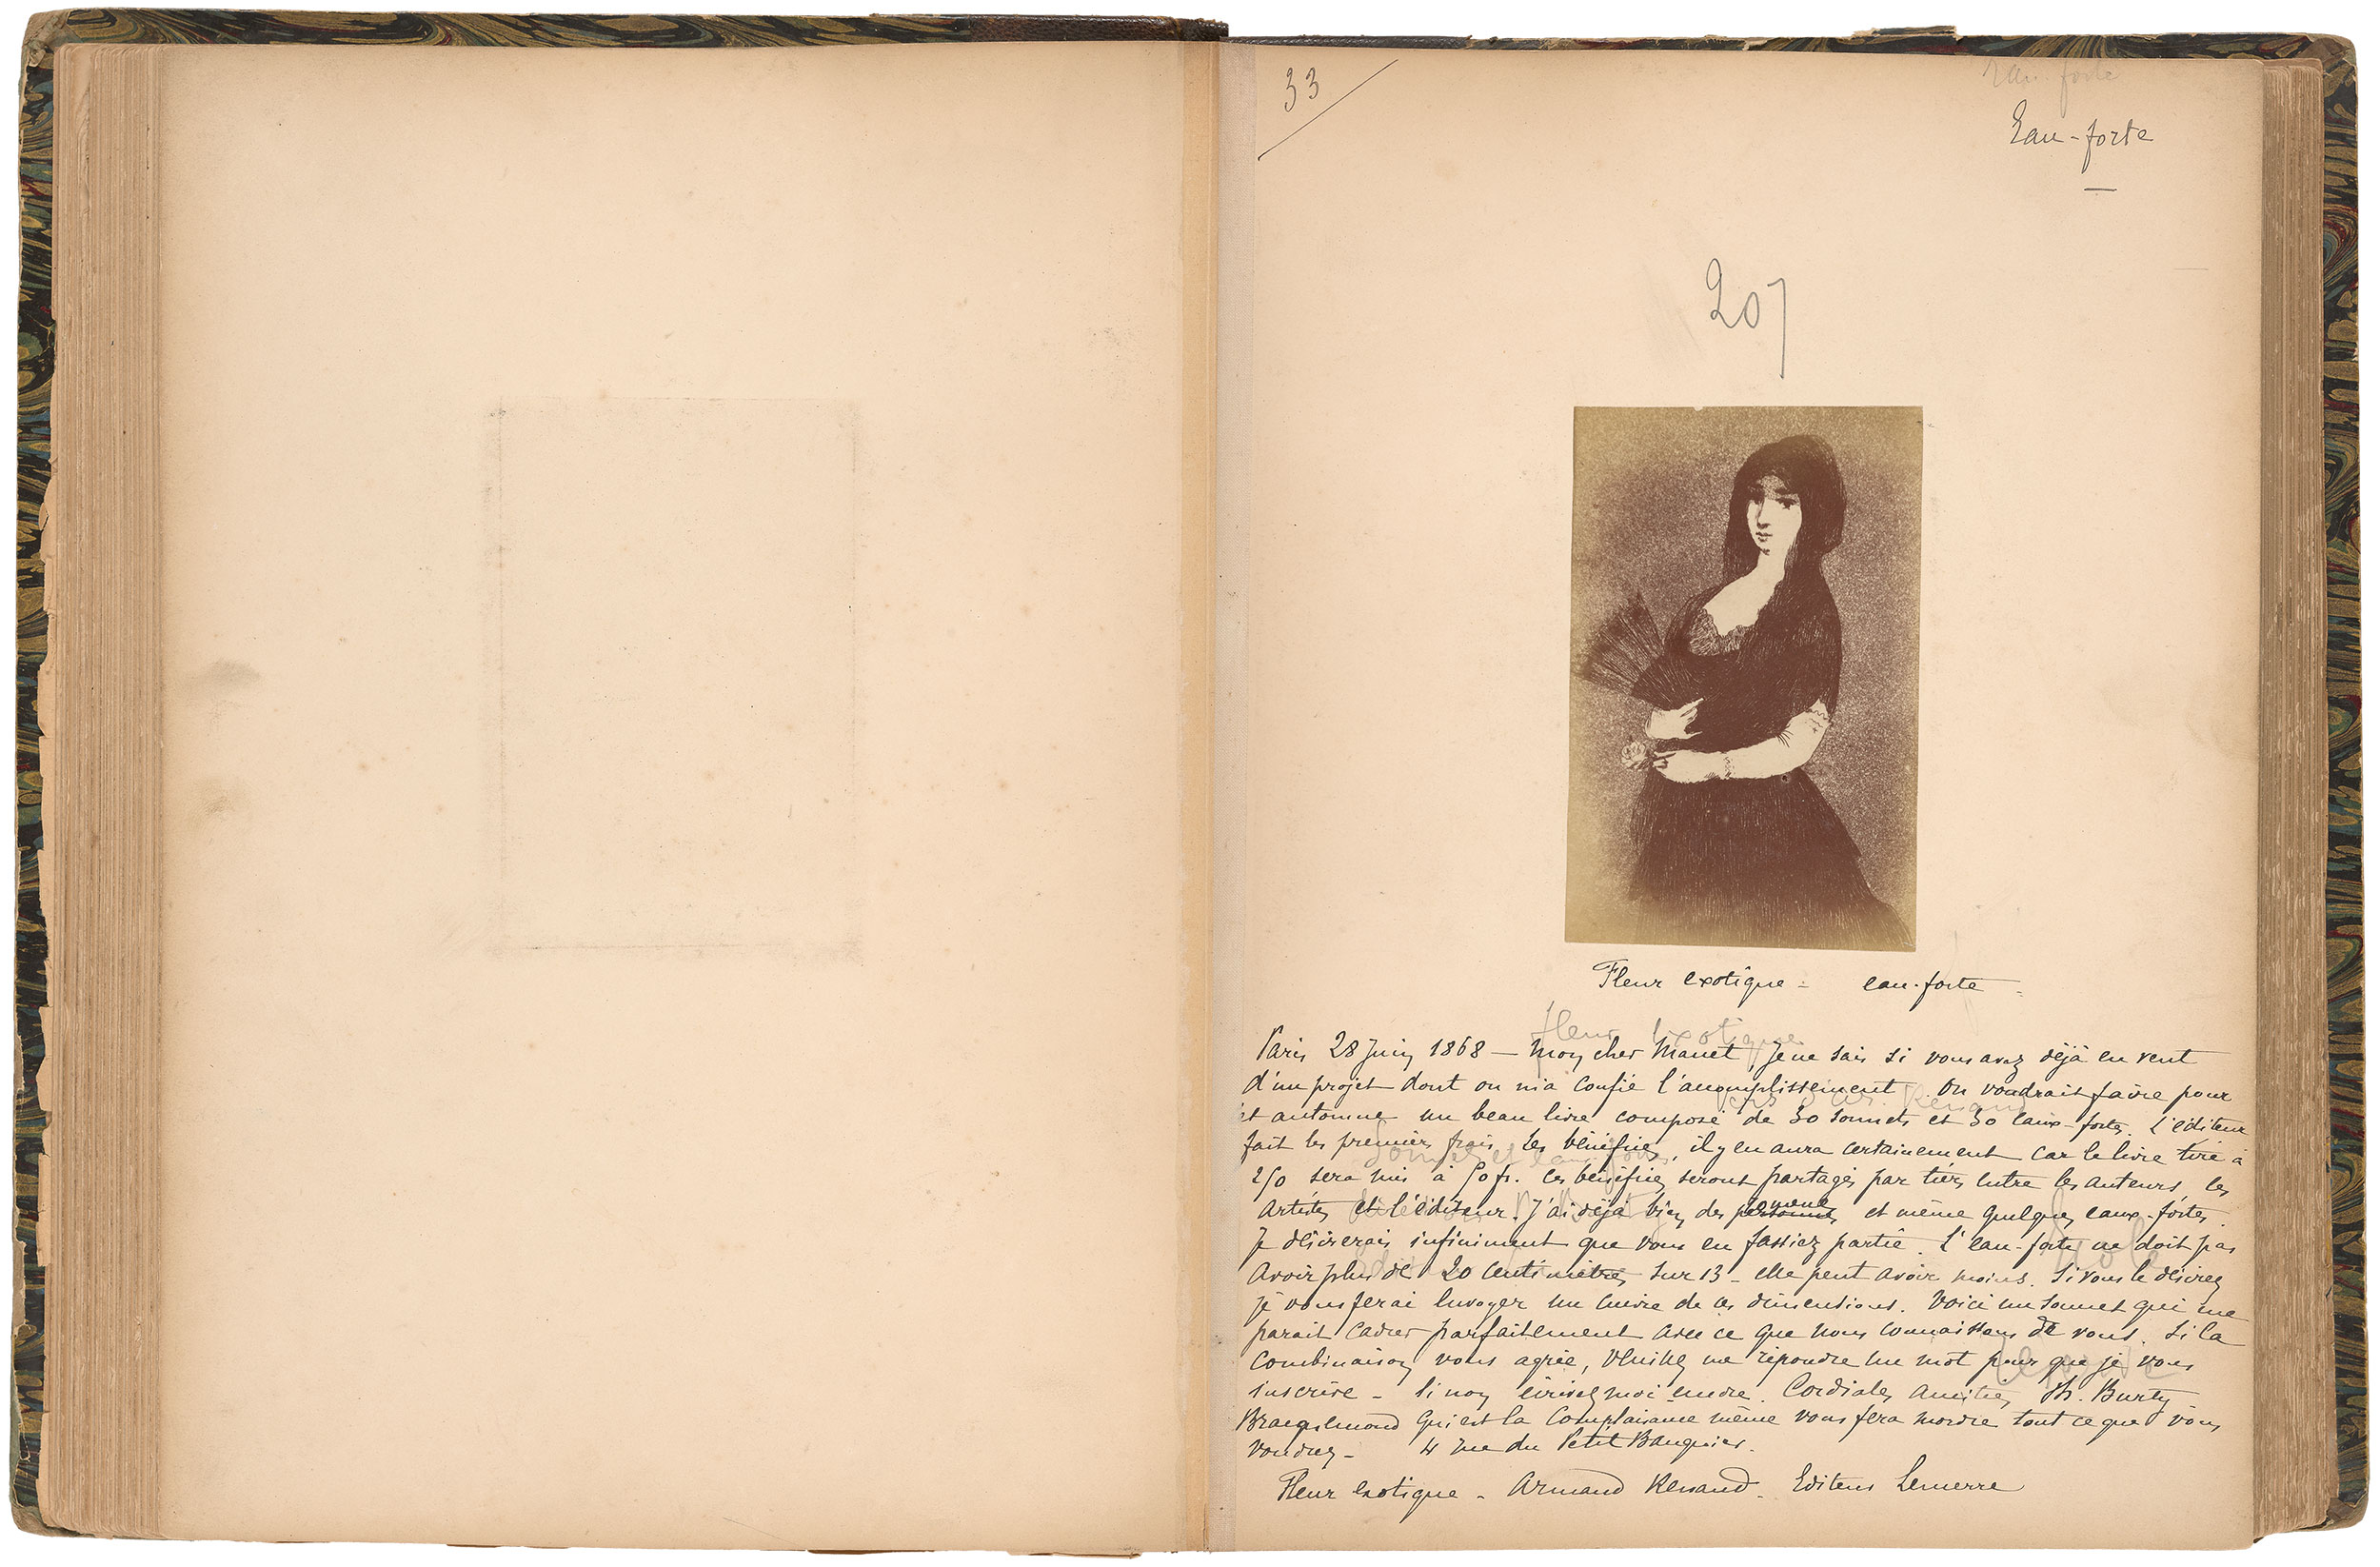 33
Eau-forte
Eau-forte
207
Fleur exotique - eau-forte -
fleur exotique
Paris 28 Juin 1868 — Mon cher Manet Je ne sais si vous avez déjà eu vent
d'un projet dont on m'a confié l'accomplissement. On voudrait faire pour
cet automne un beau livre composé de 30 sonnets et 30 eaux-fortes. L'éditeur
fait les premiers frais. Les bénéfices, il y en aura certainement car le livre tiré à
250 sera mis à 50 fr. Ces bénéfices seront partagés par tiers entre les auteurs, les
artistes et l'éditeur. J'ai déjà bien des et même quelques eaux-fortes.
Je désirerais infiniment que vous en fassiez partie. L'eau-forte ne doit pas
avoir plus de 20 centimètres sur 13 - elle peut avoir moins. Si vous le désirez
je vous ferai envoyer un cuivre de ces dimentions. Voici un sonnet qui me
parait cadrer parfaitement avec ce que nous connaissons de vous. Si la
combinaison vous agrée, veuillez me répondre un mot pour que je vous
inscrive - Si non écrivez moi encore. Cordiales amitiés, Ph. Burty
Bracquemond qui est la complaisance même vous fera mordre tout ce que vous
voudrez - 4 rue du Petit Banquier.
Fleur exotique - Armand Renaud - Editeur Lemerre